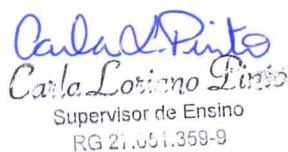 Carla L. Pinto
Carla Loriano Pinto
Supervisor de Ensino
RG 27.051.359-9